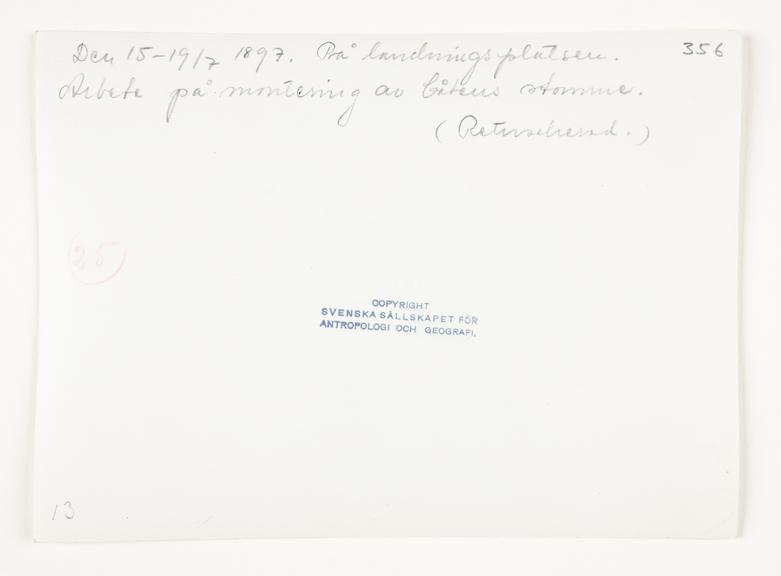 Den 15-19/7 1897. På landningsplatsen.
356
Arbete på montering av båtens stomme.
(Retuscherad.)
25
COPYRIGHT
SVENSKA SÄLLSKAPET FÖR
ANTROPOLOGI OCH GEOGRAFI.
13